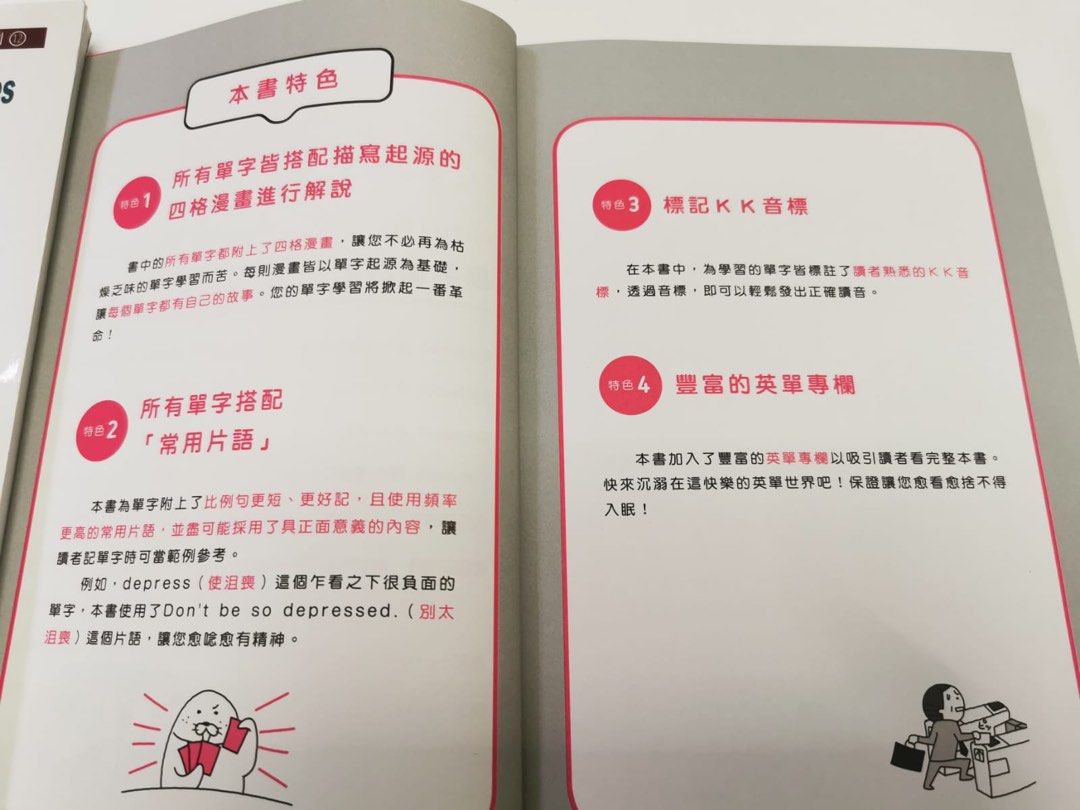 ⑫
os
本書特色
特色1
所有單字皆搭配描寫起源的
四格漫畫進行解說
書中的所有單字都附上了四格漫畫，讓您不必再為枯
燥乏味的單字學習而苦。每則漫畫皆以單字起源為基礎，
讓每個單字都有自己的故事。您的單字學習將掀起一番革
命！
特色2
所有單字搭配
「常用片語」
本書為單字附上了比例句更短、更好記，且使用頻率
更高的常用片語，並盡可能採用了具正面意義的內容，讓
讀者記單字時可當範例參考。
例如，depress（使沮喪）這個乍看之下很負面的
單字，本書使用了Don't be so depressed.（別太
沮喪）這個片語，讓您愈唸愈有精神。
特色3
標記KK音標
在本書中，為學習的單字皆標註了讀者熟悉的KK音
標，透過音標，即可以輕鬆發出正確讀音。
特色4
豐富的英單專欄
本書加入了豐富的英單專欄以吸引讀者看完整本書。
快來沉溺在這快樂的英單世界吧！保證讓您愈看愈捨不得
入眠！